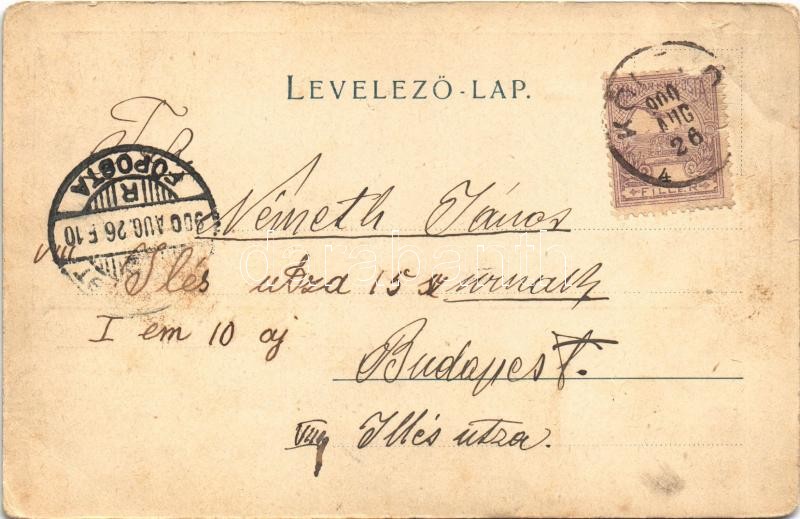 LEVELEZŐ-LAP.
900
AUG
26
4
FILLÉR
T. cz.
Németh János
FŐPOSTA
R
900 AUG. 26 F. 10
Illés utza 15 sz
I em 10 aj
Budapest.
VIII Illés utza.
darabanth